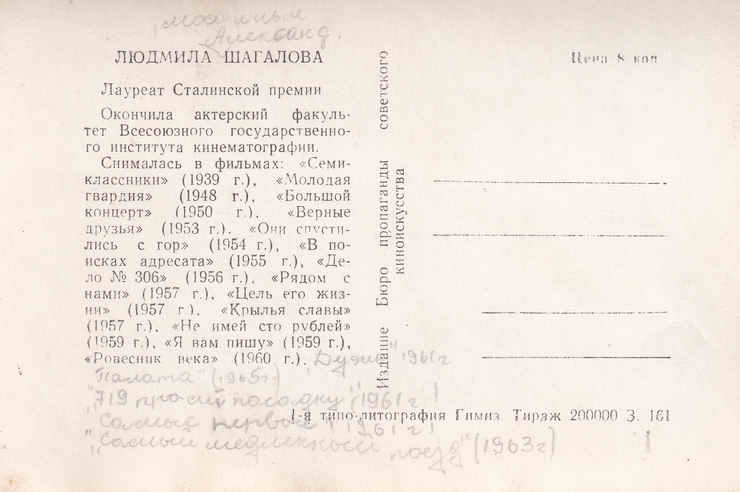 Александ.
ЛЮДМИЛА ШАГАЛОВА
Лауреат Сталинской премии
Окончила актерский факуль-
тет Всесоюзного государственно-
го института кинематографии.
Снималась в фильмах: «Семи-
классники» (1939 г.), «Молодая
гвардия» (1948 г.), «Большой
концерт» (1950 г.), «Верные
друзья» (1953 г.). «Они спусти-
лись с гор» (1954 г.), «В по-
исках адресата» (1955 г.), «Де-
ло № 306» (1956 г.), «Рядом с
нами» (1957 г.), «Цель его жиз-
ни» (1957 г.), «Крылья славы»
(1957 г.), «Не имей сто рублей»
(1959 г.), «Я вам пишу» (1959 г.),
«Ровесник века» (1960 г.). "Дуэль" 1961г
"Палата" (1965г)
"719 просит посадку" 1961г!
"Самые первые" 1961г!
"Самый медленный поезд" (1963г)
Издание Бюро пропаганды советского
киноискусства
Цена 8 коп
1-я типо-литография Гимиз. Тираж 200000 З. 161